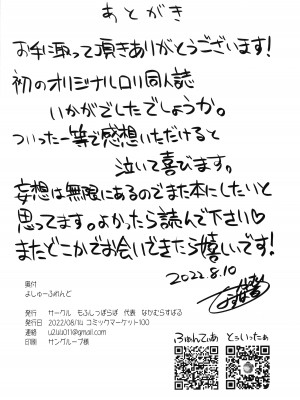 あとがき
お手に取って頂きありがとうございます!
初のオリジナルロリ同人誌
いかがでしたでしょうか。
ついったー等で感想いただけると
泣いて喜びます。
妄想は無限にあるのでまた本にしたいと
思ってます。よかったら読んで下さい♡
またどこかでお会いできたら嬉しいです!
2022.8.10
奥付
よしゅーふれんど
発行 サークル もふしっぽらぼ 代表 なかむらすばる
発行日 2022/08/14 コミックマーケット100
連絡
印刷 サングループ様
ふぁんてぃあ
とぅいったぁ